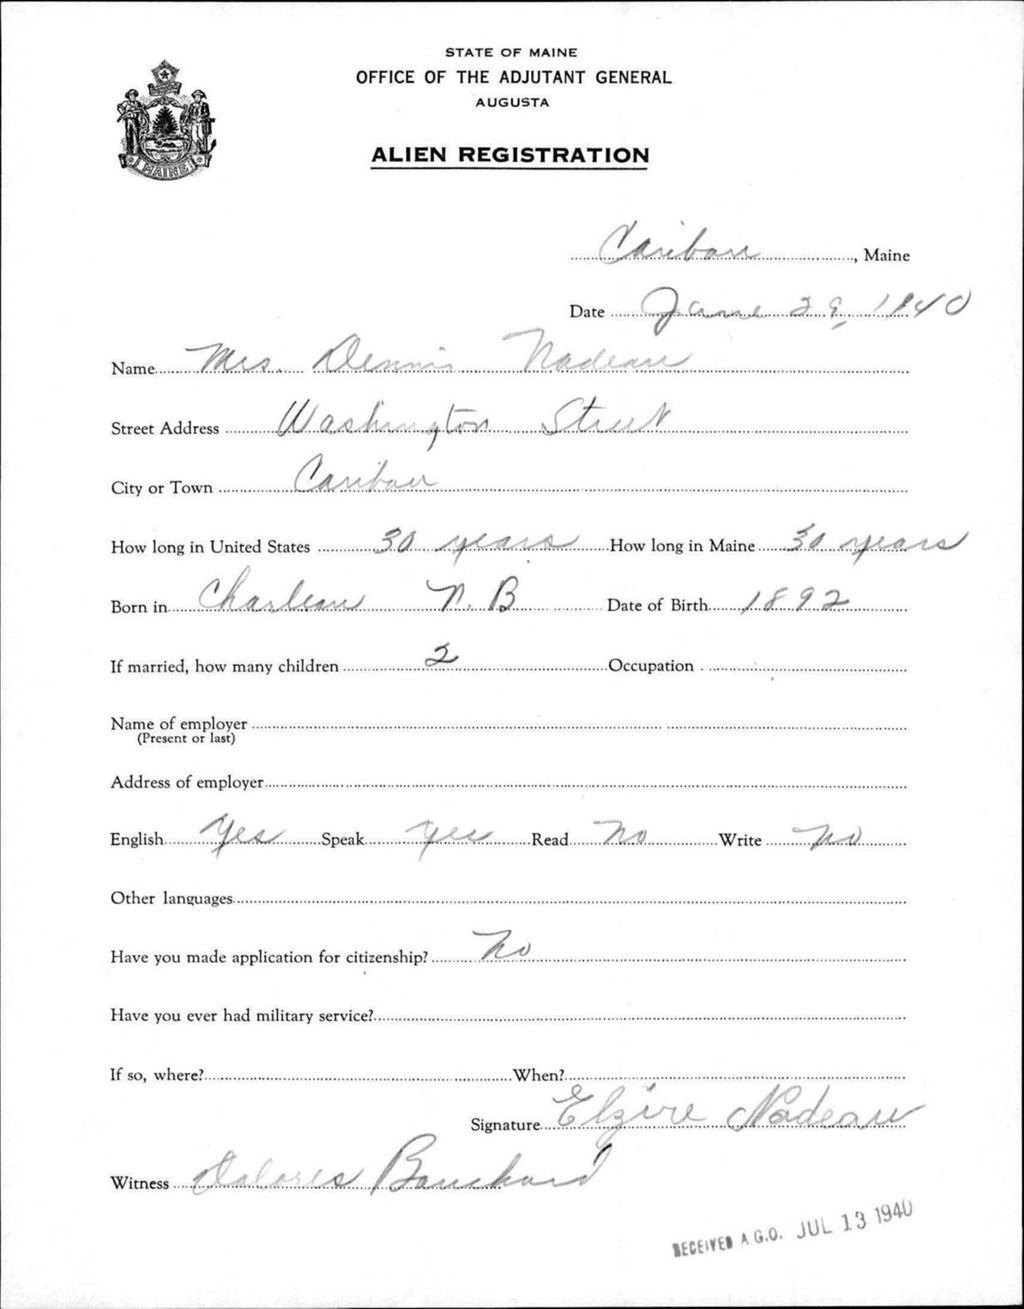 STATE OF MAINE
OFFICE OF THE ADJUTANT GENERAL
AUGUSTA
ALIEN REGISTRATION
MAINE
Caribou, Maine
Date June 29, 1940
Name Mrs. Dennis Nadeau
Street Address Washington Street
City or Town Caribou
How long in United States 30 years How long in Maine 30 years
Born in Charleau N. B Date of Birth 1892
If married, how many children 2 Occupation
Name of employer
(Present or last)
Address of employer
English Yes Speak yes Read No Write No
Other languages
Have you made application for citizenship? No
Have you ever had military service?
If so, where? When?
Signature Elzire Nadeau
Witness Dolores Bouchard
RECEIVED A.G.O. JUL 13 1940